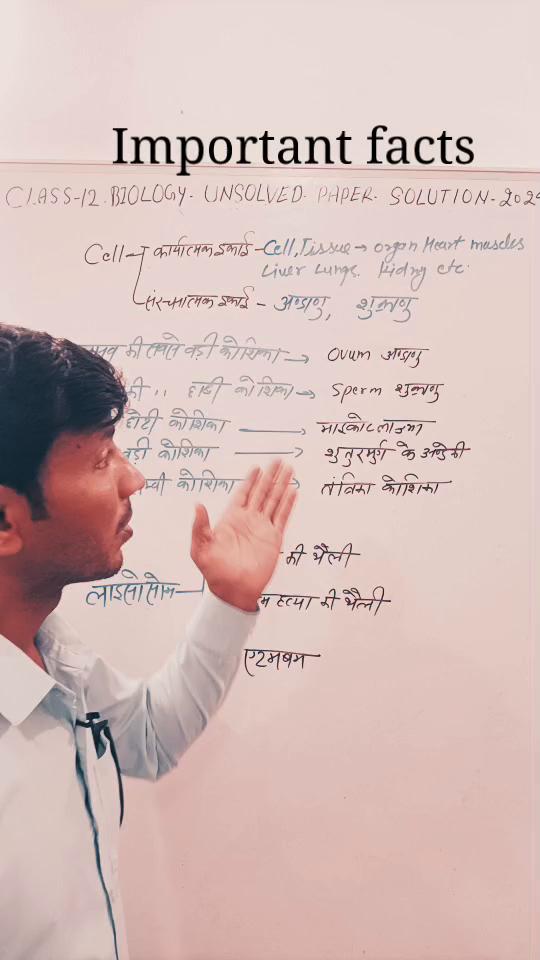 Important facts
CLASS-12 BIOLOGY. UNSOLVED. PAPER. SOLUTION-202
Cell - कार्यात्मक इकाई - Cell, Tissue → organ Heart muscles
Liver Lungs. Kidny etc.
संरचनात्मक इकाई - अण्डाणु, शुक्राणु
की सबसे बड़ी कोशिका → Ovum अण्डाणु
की ,, छोटी कोशिका → Sperm शुक्राणु
छोटी कोशिका → माइकोप्लाज्मा
कोशिका → शुतुरमुर्ग के अण्डे की
कोशिका → तंत्रिका कोशिका
की थैली
लाइसोसोम
हत्या की थैली
एटमबम